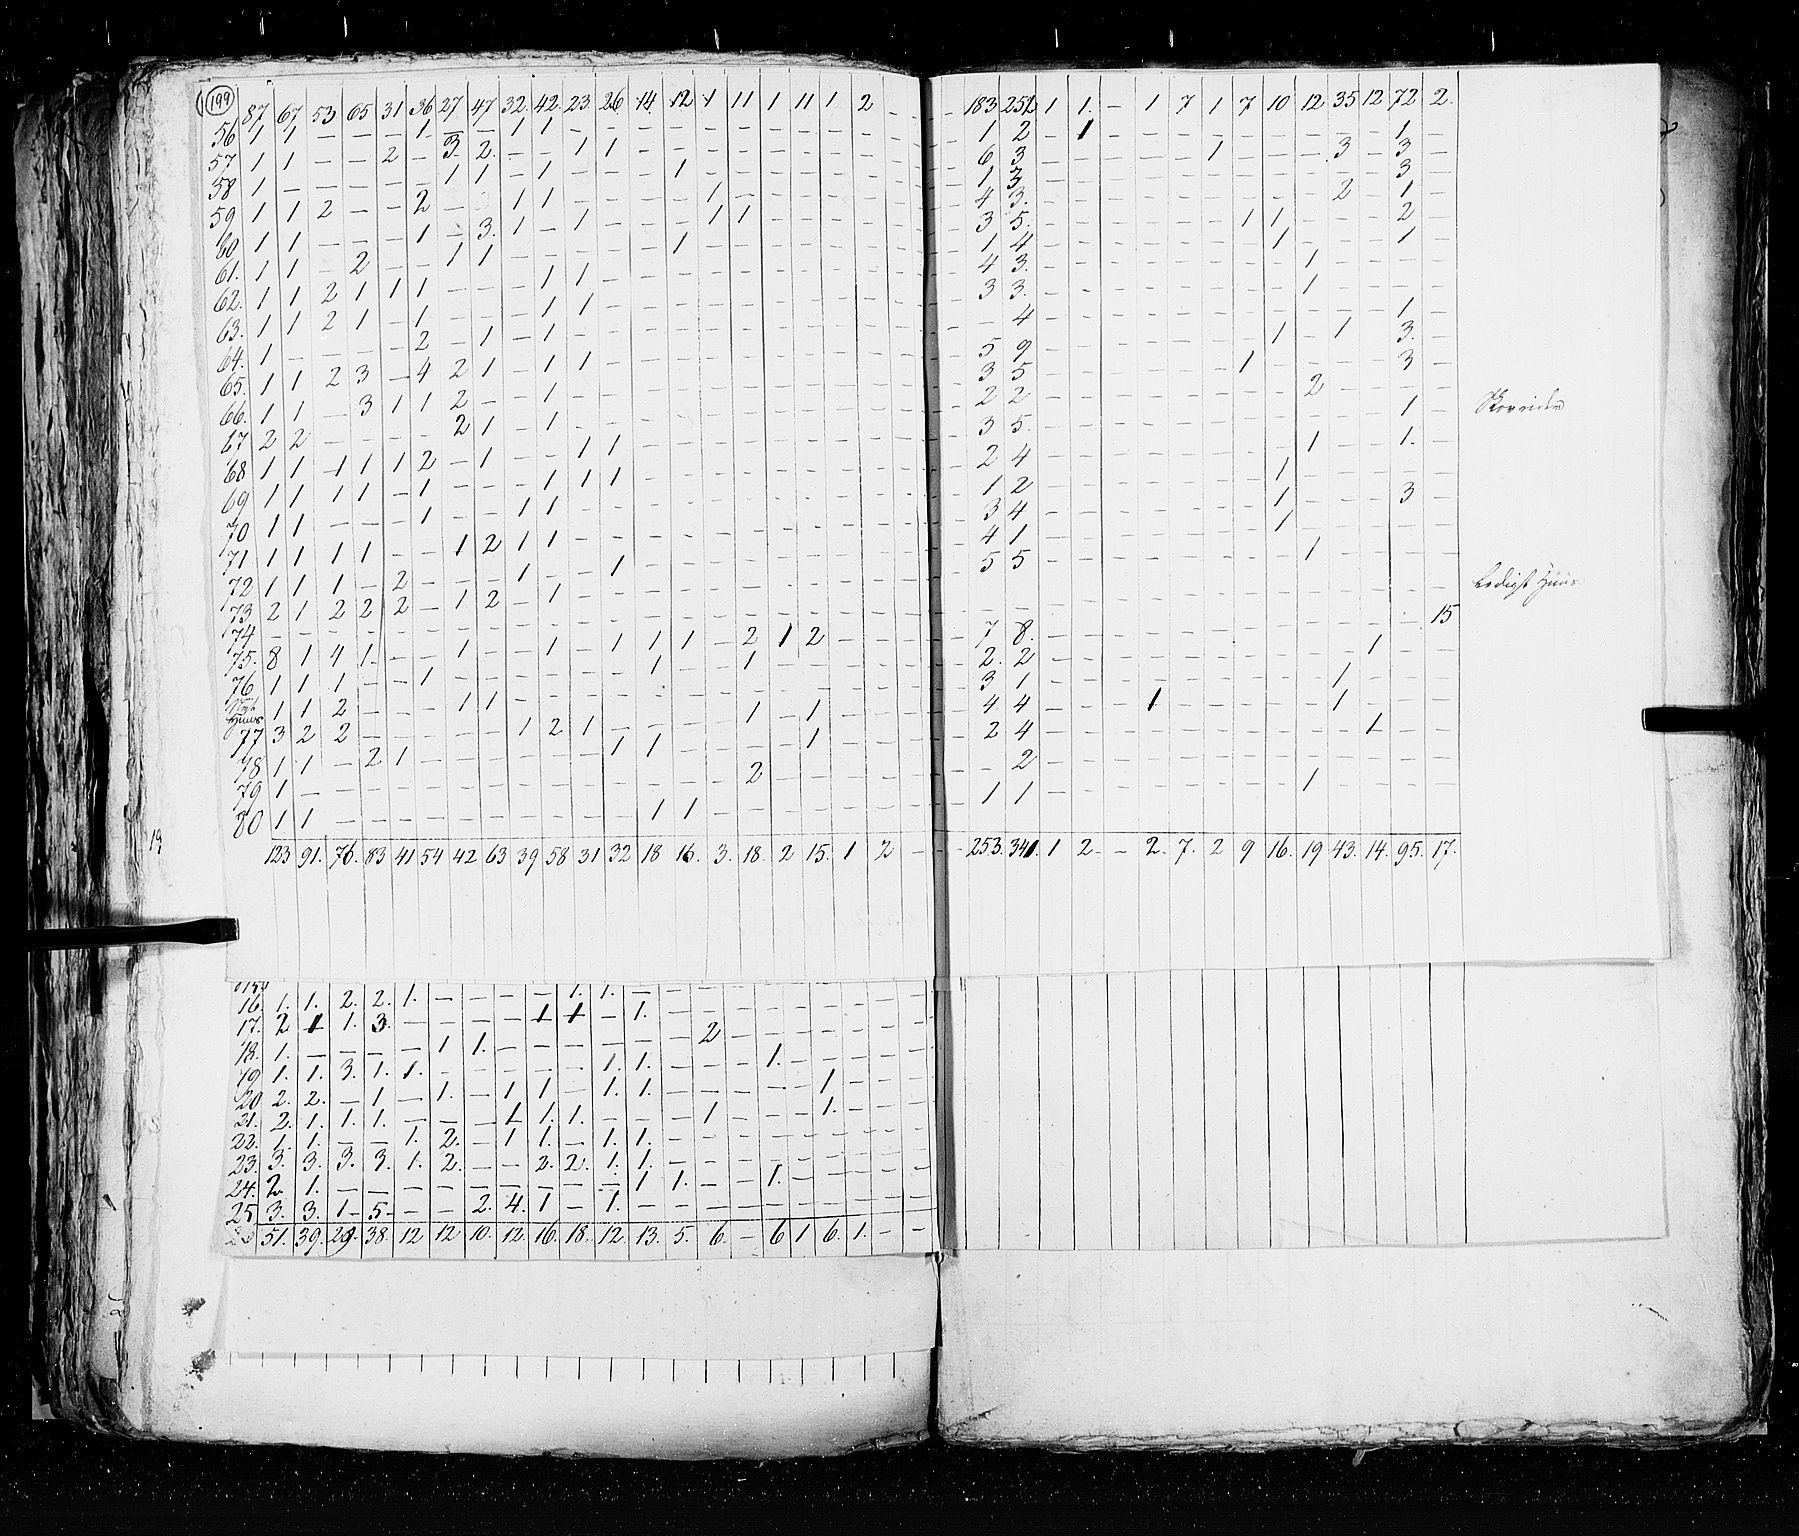 199 87 67 53 65 31 36 27 47 32. 42. 23 26. 14. 12 1 11 1 11 1 2 - - - 183 252 1 1. - 1 7 1 7 10 12 35 12 72 2.
56 1 1 - - - 1 - - 1 1 - - - - - - - - - - - 1 2 - 1 - - - - - - - - - 1 -
57 1 1 - - 2 - 3. 2. - - 1 1 - - - - - - - - - 6 3 - - - - - 1 - - - 3 - 3 -
58 1 - - - - - 1 1 - 1 - - - 1 - - - - - - - 1 3 - - - - - - - - - - - 3 -
59 1 1 2 - - 2 - - 1 1 - - - - 1 - - - - - - 4 3. - - - - - - - - - 2 - 1 -
60 1 1 - - - 1 - 3. 1 - 1 - - - 1 1 - - - - - 3 5. - - - - - - 1 1 - - - 2 -
61. 1 1 - 2 - - 1 1 - - - - - 1 - - - - - - - 1 4 - - - - - - - 1 - - - 1 -
62. 1 1 2 1 1 1 - - - 1 1 - - - - - - - - - - 4 3. - - - - - - - - 1 - - - -
63. 1 1 2 1 - 1 - - - 1 1 - - - - - - - - - - 3 3. - - - - - - - - 1 - - - -
64. 1 - - - - 2 - 1 - 1 - - - - - - - - - - - - 4 - - - - - - - - - - - 1 -
65. 1 1 2 3 - 4 2 1 - 1 1 - - - - - - - - - - 5 9 - - - - - - - 1 - 1 - 3. -
66. 1 1 - 3 1 1 2 - - 1 - - - - - - - - - - - 3 5 - - - - - - 1 - - - - 3 -
67 2 2 - - - - 2 1 - 1 - - - - - - - - - - - 2 2 - - - - - - - - 2 - - - -
68 1 1 1 1 1 2 - 1 - - 1 1 - - - - - - - - - 3 5. - - - - - - - - - - - 1 -
69 1 1 1 1 - 1 - - - 1 1 1 - - - - - - - - - 2 4 - - - - - - - - 1 - - 1. -
70 1 1 - - - 1 - - 1 1 - - - - - - - - - - - 1 2 - - - - - - - 1 - - - - -
71 1 1 1 1 - - 1 2 1 1 - - - - - - - - - - - 3 4 - - - - - - - 1 - - - 3 -
72 1 1 1 - 2 - - - 1 - - 1 - - - - - - - - - 4 1 - - - - - - - 1 - - - - -
73 2 1 2 2 2 - 1 2 - 1 - - - - - - - - - - - 5 5 - - - - - - - - 1 - - - -
74 - - - - - - - - - - - - - - - - - - - - - - - - - - - - - - - - - - - - -
75. 8 1 4 1. - - 1 - - 1 - 1 1 1 - 2 1 2 - - - 7 8. - - - - - - - - - - - - 15
76 1 1 1 - - 1 - - - - - - 1 - - 1 - - - - - 2. 2 - - - - - - - - - - 1 - -
Huus 1 1 2 - - - 1 1 - - - - - - - - - - - - - 3 1 - - - - - - - - - 1 - - -
77 3 2 2 - - - - - 1 2 1 - - - - 1 - 1 - - - 4 4 - - - 1 - - - - - 1 - - -
78 1 1 - 2 1 - - - - - - 1 1 - - - - 1 - - - 2 4 - - - - - - - - - - 1 - -
79 1 - - - - - - - - - - - - - - 2 - - - - - - 2 - - - - - - - - - - - - -
80 1 1 - - - - - - - - - - 1 1 - - - - - - - 1 1 - - - - - - - - 1 - - - -
123 91. 76. 83 41 54 42 63 39 58 31 32 18 16. 3. 18. 2 15. 1 2 - - - 253. 341. 1 2. - 2. 7. 2 9 16. 19 43. 14. 95. 17.
Ledigt Huus
19
16. 1. 1. 2. 2. 1. - - - - 1. 1. - - - - - - - - -
17. 2 1 1. 3. - - - - 1 1 - 1. - - - - - - - -
18. 1. - - - - 1 1. - - - - - - 2 - - - - - -
19 1. 1. 3. 1. 1. - - - - - 1. 1. - - - 1. - - - -
20 2. 2. - 1 - 1. - 1 1 - 1. 1. - - - - 1 - - -
21. 2. 1. 1. 1. - - - 1 1. 1. - - - 1 - - 1. - - -
22. 1. 1. - - 1. 2. - 1 1. - 1. 1. - - - - - - - -
23. 3. 3. 3. 3. 1. 2. - - 2. 2. 1. 1. - - - - - - - -
24. 2. 1. - - - - - - - - - 1 1. - - 1. - - - -
25. 3. 3. 1. 5. - - 2. 4. 1 - 1. - - - - - - - - -
51. 39. 29. 38. 12 12 10. 12. 16. 18. 12. 13. 5. 6. - 6 1 6. 1. - -